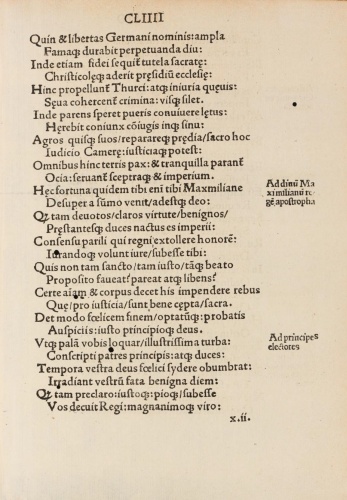 CLIIII
Quin & libertas Germani nominis: ampla
Famaqꝫ durabit perpetuanda diu:
Inde etiam fidei sequit᷑ tutela sacratę:
Christicolęqꝫ aderit pręsidiū ecclesię:
Hinc propellunt᷑ Thurci: atqꝫ iniuria quęuis:
Sęua cohercent᷑ crimina: visqꝫ silet.
Inde parens speret pueris conuiuere lętus:
Hęrebit coniunx cōiugis inqꝫ sinu:
Agros quisqꝫ suos/reparareqꝫ prędia/sacro hoc
Iudicio Camerę: iusticiaqꝫ potest:
Omnibus hinc terris pax: & tranquilla parant᷑
Ocia: seruant᷑ sceptraqꝫ & imperium.
Hęc fortuna quidem tibi eni tibi Maxmiliane
Desuper a sūmo venit/adestqꝫ deo:
Qꝫ tam deuotos/claros virtute/benignos/
Pręstantesqꝫ duces nactus es imperii:
Consensu parili qui regni extollere honorē:
Iurandoqꝫ volunt iure/subesse tibi:
Quis non tam sancto/tam iusto/tāqꝫ beato
Proposito faueat? pareat atqꝫ libens?
Certe aīam & corpus decet his impendere rebus
Quę/pro iusticia/sunt bene cępta/sacra.
Det modo fœlicem finem/optatūqꝫ: probatis
Auspiciis: iusto principioqꝫ deus.
Vtqꝫ palā vobis loquar/illustrissima turba:
Conscripti patres principis: atqꝫ duces:
Tempora vestra deus fœlici sydere obumbrat:
Irradiant vestrū fata benigna diem:
Qꝫ tam preclaro: iustoqꝫ: pioqꝫ/subesse
Vos decuit Regi: magnanimoqꝫ viro:
x.ii.
Ad diuū Ma
ximilianū re
gē apostropha
Ad principes
electores